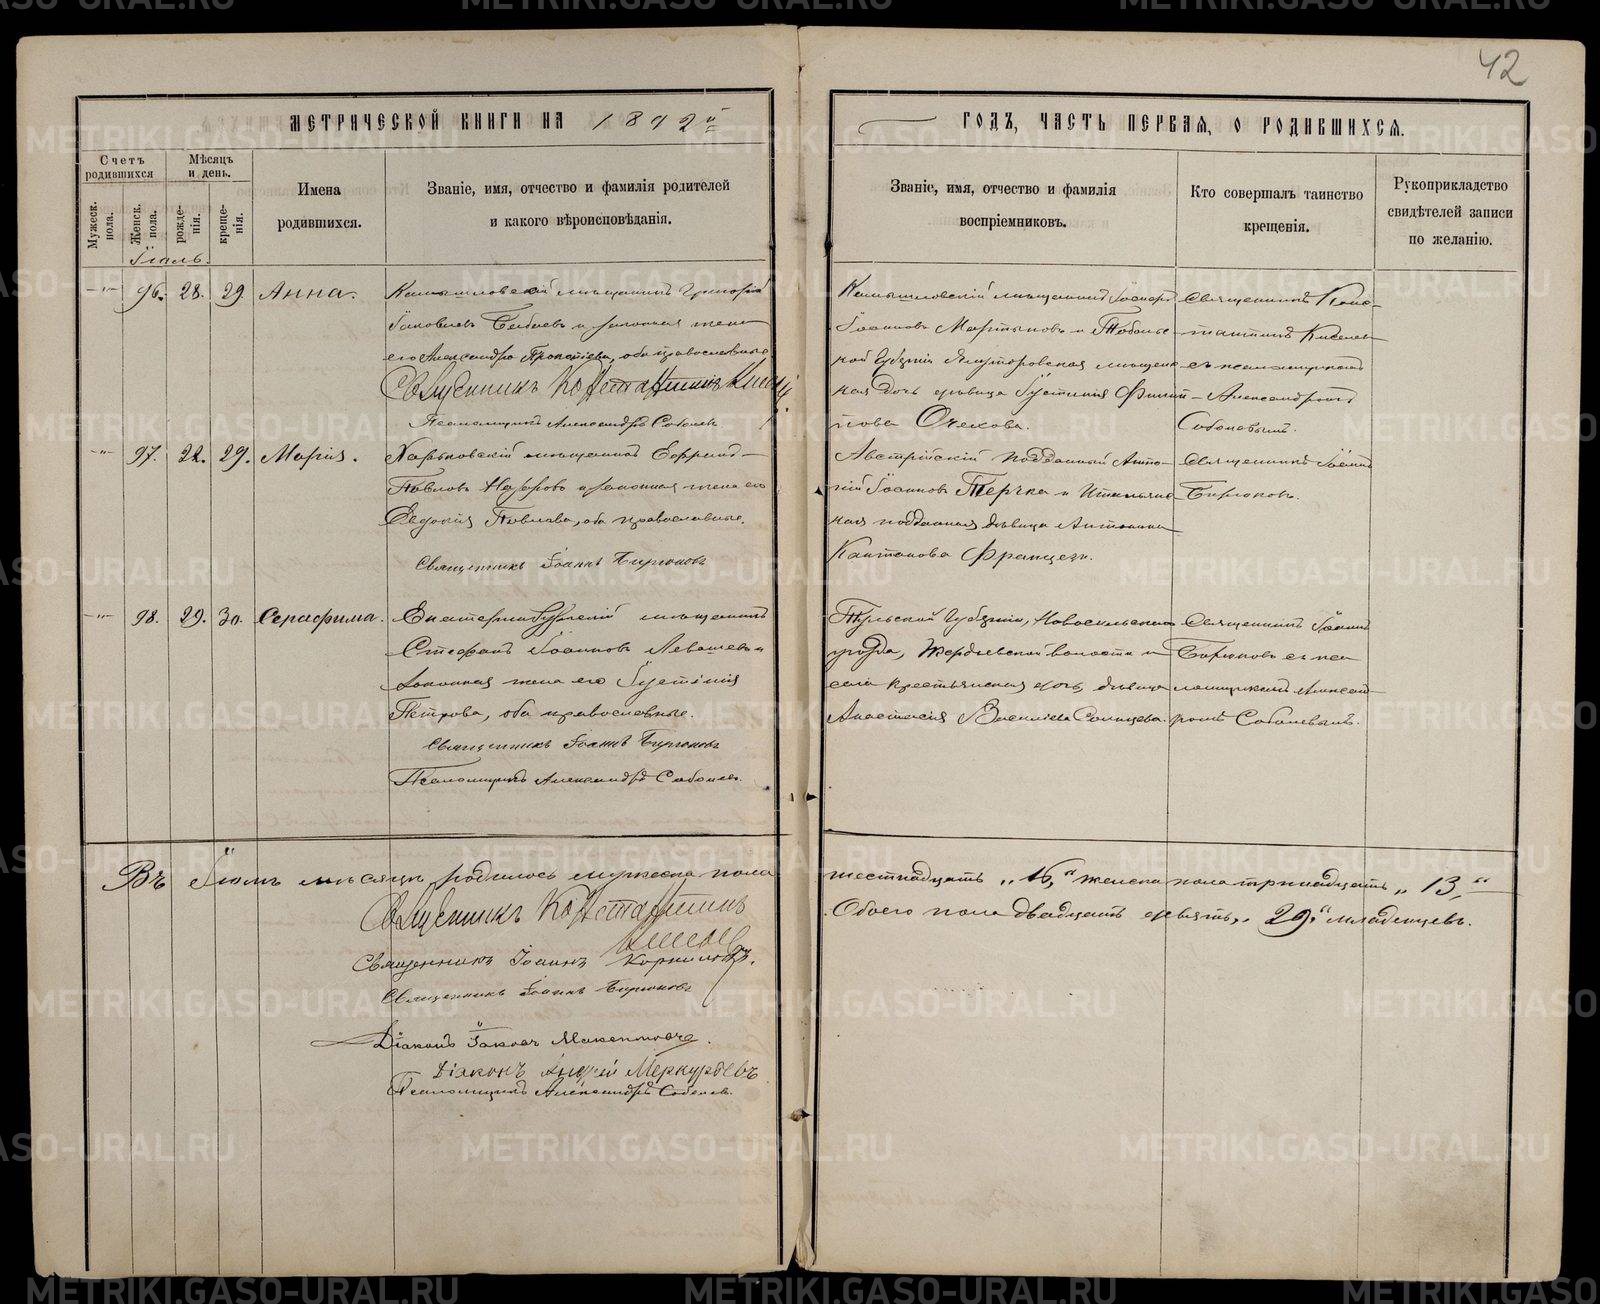 42
МЕТРИЧЕСКОЙ КНИГИ НА 1892й
ГОДЪ, ЧАСТЬ ПЕРВАЯ, О РОДИВШИХСЯ.
Счетъ родившихся
Мужеск. пола.
Женск. пола.
Мѣсяцъ и день.
рожде-нія.
креще-нія.
Имена
родившихся.
Званіе, имя, отчество и фамилія родителей
и какого вѣроисповѣданія.
Званіе, имя, отчество и фамилія
воспріемниковъ.
Кто совершалъ таинство
крещенія.
Рукоприкладство
свидѣтелей записи
по желанію.
96. 28. 29. Анна.
Камышловскій мѣщанинъ Григорій
Іаковлевъ и законная жена
его Александра, оба православные.
Священникъ Константинъ
Псаломщикъ Александръ Соболевъ
Камышловскій мѣщанинъ
Іоанновъ Мартыновъ и Тоболь-
ской Губерніи Ялуторовская мѣщанс-
кая дочь дѣвица Іустинія Филип-
пова
Священникъ Конс-
тантинъ
съ псаломщикомъ
Александромъ
Соболевымъ.
97. 22. 29. Марія.
Харьковскій мѣщанинъ
Павловъ и законная жена его
Евдокія Павлова, оба православные.
Священникъ Іоаннъ Бирюковъ
Австрійскій подданный Анто-
ній Іоанновъ и Итальянс-
кая подданная дѣвица Антонина
Священникъ Іоаннъ
Бирюковъ.
98. 29. 30. Серафима.
Екатеринбургскій мѣщанинъ
Стефанъ Іоанновъ Левашевъ и
законная жена его Іустинія
Петрова, оба православные.
Священникъ Іоаннъ Бирюковъ
Псаломщикъ Александръ Соболевъ.
Тульской Губерніи, Новосильскаго
уѣзда, волости и
села крестьянская дочь, дѣвица
Анастасія Василіева Солнцева.
Священникъ Іоаннъ
Бирюковъ съ пса-
ломщикомъ Александ-
ромъ Соболевымъ.
Въ Іюлѣ мѣсяцѣ родилось мужеска пола
шестнадцать „16,“ женска пола тринадцать „13,“
Обоего пола двадцать девять, „29,“ младенцевъ.
Священникъ Константинъ
Священникъ Іоаннъ Корниловъ.
Священникъ Іоаннъ Бирюковъ
Діаконъ Іаковъ
Діаконъ Андрей Меркурьевъ
Псаломщикъ Александръ Соболевъ.
METRIKI.GASO-URAL.RU